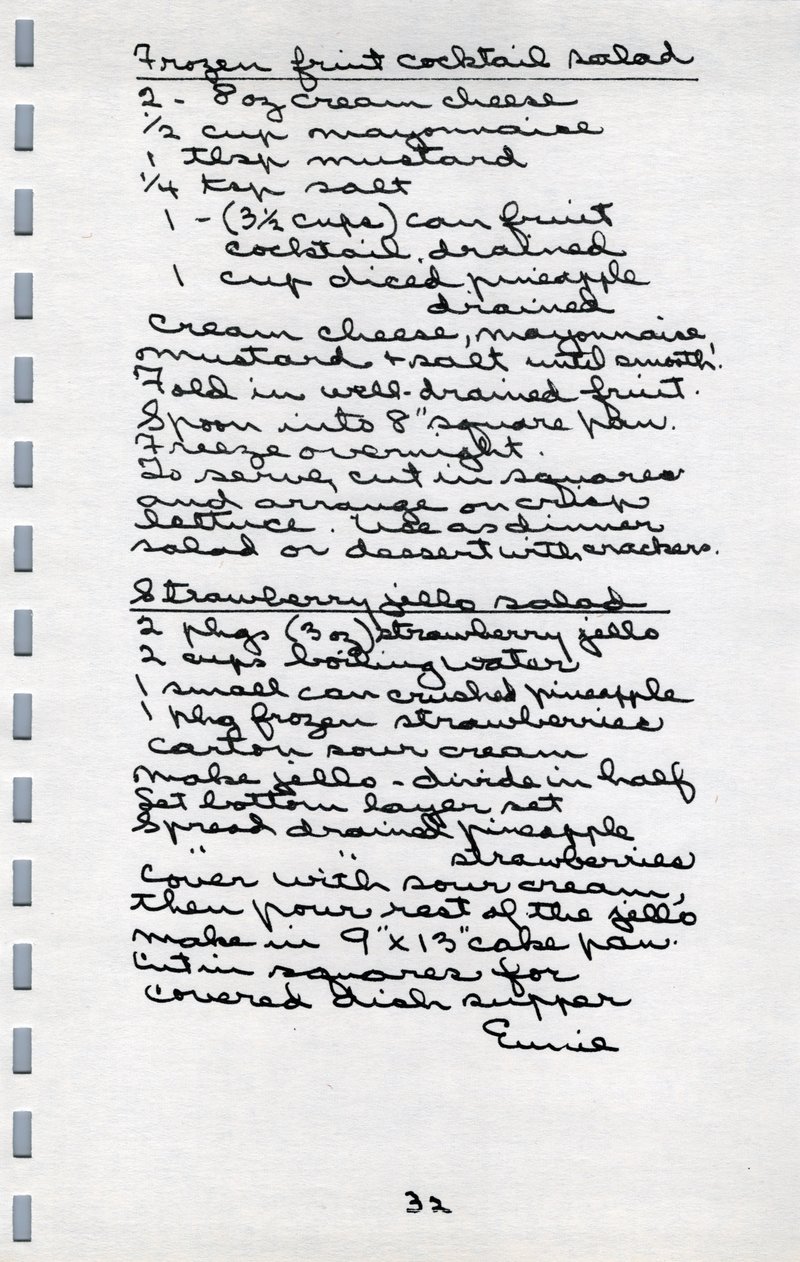 Frozen fruit cocktail salad
2 - 8 oz cream cheese
1/2 cup mayonnaise
1 tbsp mustard
1/4 tsp salt
1 - (3 1/2 cups) can fruit
cocktail, drained
1 cup diced pineapple
drained
Cream cheese, mayonnaise,
mustard + salt until smooth.
Fold in well-drained fruit.
Spoon into 8" square pan.
Freeze overnight.
To serve, cut in squares
and arrange on crisp
lettuce. Use as dinner
salad or dessert with crackers.
Strawberry jello salad
2 pkgs (3 oz) strawberry jello
2 cups boiling water
1 small can crushed pineapple
1 pkg frozen strawberries
carton sour cream
Make jello - divide in half
Let bottom layer set
Spread drained pineapple
" " strawberries
Cover with sour cream,
then pour rest of the jello
Make in 9" x 13" cake pan.
Cut in squares for
covered dish supper
Eunie
32